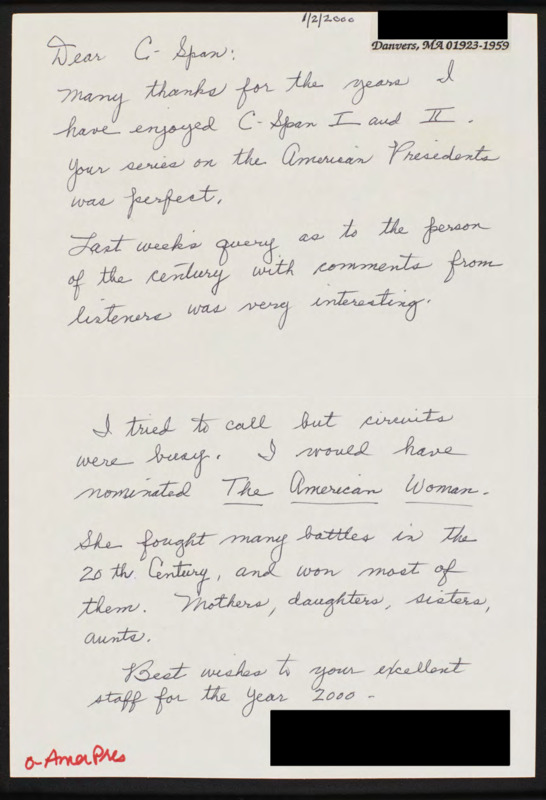 1/2/2000
Danvers, MA 01923-1959
Dear C-Span:
Many thanks for the years I
have enjoyed C-Span I and II.
Your series on the American Presidents
was perfect.
Last week's query as to the person
of the century with comments from
listeners was very interesting.
I tried to call but circuits
were busy. I would have
nominated The American Woman.
She fought many battles in the
20th Century, and won most of
them. Mothers, daughters, sisters,
aunts.
Best wishes to your excellent
staff for the Year 2000-
o-AmerPres